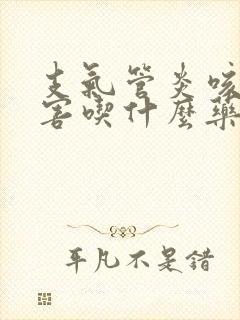 支氣管炎咳
害喫什麼藥
平凡不是錯